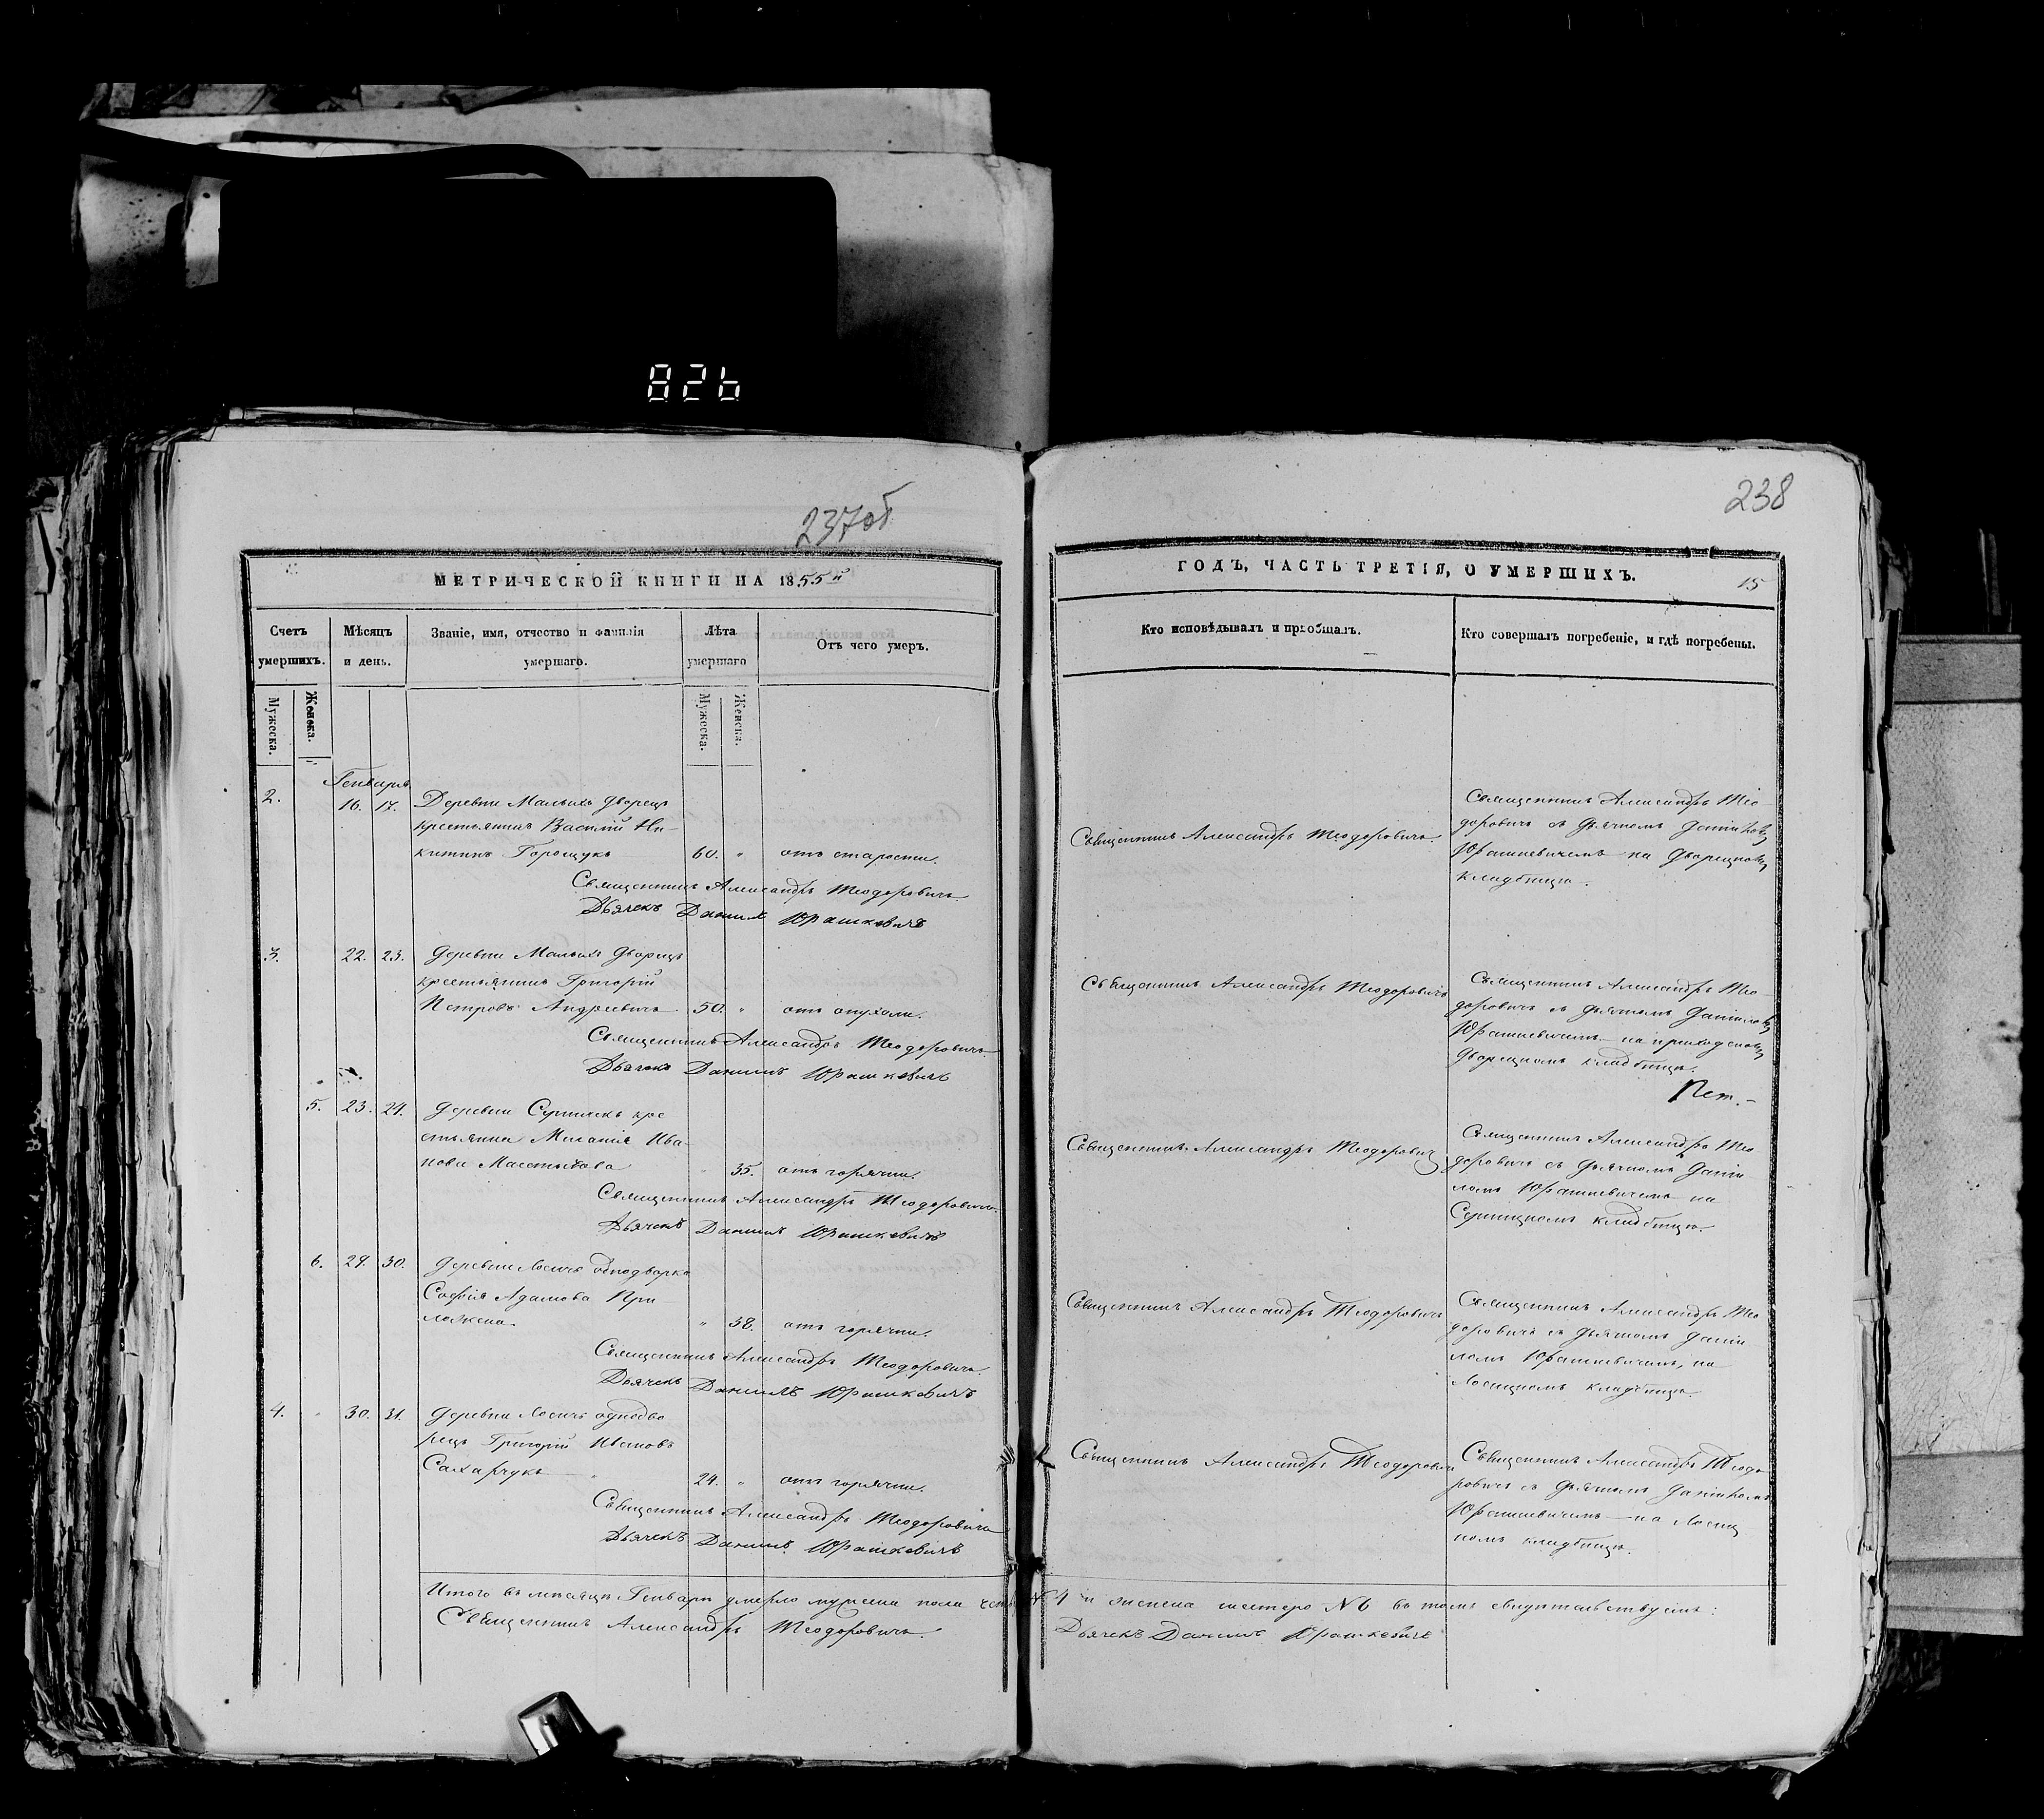 826
237об
238
МЕТРИЧЕСКОЙ КНИГИ НА 1855й
ГОДЪ, ЧАСТЬ ТРЕТІЯ, О УМЕРШИХЪ.
15
Счетъ умершихъ.
Мѣсяцъ и день.
Званіе, имя, отчество и фамилія умершаго.
Лѣта умершаго
Отъ чего умеръ.
Кто исповѣдывалъ и пріобщалъ.
Кто совершалъ погребеніе, и гдѣ погребены.
Мужеска.
Женска.
Мужеска.
Женска.
Генваря
2. 16. 17. Деревни Малыхъ Дворецъ
крестьянинъ Василій Ни-
китинъ Горощукъ 60. " отъ старости.
Священникъ Александръ Теодоровичъ
Дьячекъ Даниилъ Юрашкевичъ
Священникъ Александръ Теодоровичъ.
Священникъ Александръ Тео-
доровичъ съ дьячкомъ Даніиломъ
Юрашкевичемъ на Дворецкомъ
кладбищѣ.
3. 22. 23. Деревни Малыхъ Дворецъ
крестьянинъ Григорій
Петровъ Андреевичъ 50. " отъ опухоли.
Священникъ Александръ Теодоровичъ
Дьячекъ Даниилъ Юрашкевичъ
Священникъ Александръ Теодоровичъ
Священникъ Александръ Тео-
доровичъ съ дьячкомъ Даніиломъ
Юрашкевичемъ на приходскомъ
Дворецкомъ кладбищѣ.
5. 23. 24. Деревни кре
стьянка Меланія Ива-
нова 35. отъ горячки.
Священникъ Александръ Теодоровичъ.
Дьячекъ Даниилъ Юрашкевичъ
Священникъ Александръ Теодоровичъ
Священникъ Александръ Тео
доровичъ съ дьячкомъ Даніи
ломъ Юрашкевичемъ на
кладбищѣ.
6. 29. 30. Деревни Лосичъ однодворка
Софія Адамова При-
ложена. " 38. отъ горячки.
Священникъ Александръ Теодоровичъ.
Дьячекъ Даниилъ Юрашкевичъ
Священникъ Александръ Теодоровичъ
Священникъ Александръ Тео
доровичъ съ дьячкомъ Даніи
ломъ Юрашкевичемъ, на
Лосицкомъ кладбищѣ.
4. " 30. 31. Деревни Лосичъ однодво
рецъ Григорій Ивановъ
Сахарчукъ 24. " отъ горячки.
Священникъ Александръ Теодоровичъ
Дьячекъ Даниилъ Юрашкевичъ
Священникъ Александръ Теодоровичъ
Священникъ Александръ Теодо
ровичъ съ дьячкомъ Даніиломъ
Юрашкевичемъ на Лосиц
комъ кладбищѣ.
Итого въ мѣсяцѣ Генварѣ умерло мужеска пола 4 и женска шестеро №6 въ томъ свидѣтельствуемъ:
Священникъ Александръ Теодоровичъ.
Дьячекъ Даниилъ Юрашкевичъ